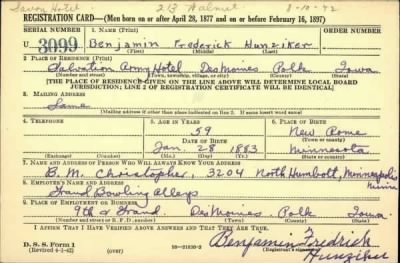 Savoy Hotel 213 Walnut 8-10-42
REGISTRATION CARD—(Men born on or after April 28, 1877 and on or before February 16, 1897)
SERIAL NUMBER 1. NAME (Print) ORDER NUMBER
U 3099 Benjamin Frederick Hunziker
(First) (Middle) (Last)
2. PLACE OF RESIDENCE (Print)
Salvation Army Hotel Des Moines Polk Iowa
(Number and street) (Town, township, village, or city) (County) (State)
[THE PLACE OF RESIDENCE GIVEN ON THE LINE ABOVE WILL DETERMINE LOCAL BOARD
JURISDICTION; LINE 2 OF REGISTRATION CERTIFICATE WILL BE IDENTICAL]
3. MAILING ADDRESS
Same
[Mailing address if other than place indicated on line 2. If same insert word same]
4. TELEPHONE 5. AGE IN YEARS 6. PLACE OF BIRTH
59 New Rome
DATE OF BIRTH (Town or county)
Jan. 28 1883 Minnesota
(Exchange) (Number) (Mo.) (Day) (Yr.) (State or country)
7. NAME AND ADDRESS OF PERSON WHO WILL ALWAYS KNOW YOUR ADDRESS
B. M. Christopher, 3204 North Humbolt, Minneapolis
Minn
8. EMPLOYER'S NAME AND ADDRESS
Grand Bowling Alleys
9. PLACE OF EMPLOYMENT OR BUSINESS
9th & Grand. Des Moines Polk Iowa
(Number and street or R. F. D. number) (Town) (County) (State)
I AFFIRM THAT I HAVE VERIFIED ABOVE ANSWERS AND THAT THEY ARE TRUE.
D. S. S. Form 1
(Revised 4-1-42) (over) 16—21630-2
Benjamin Fredrick
Hunziker